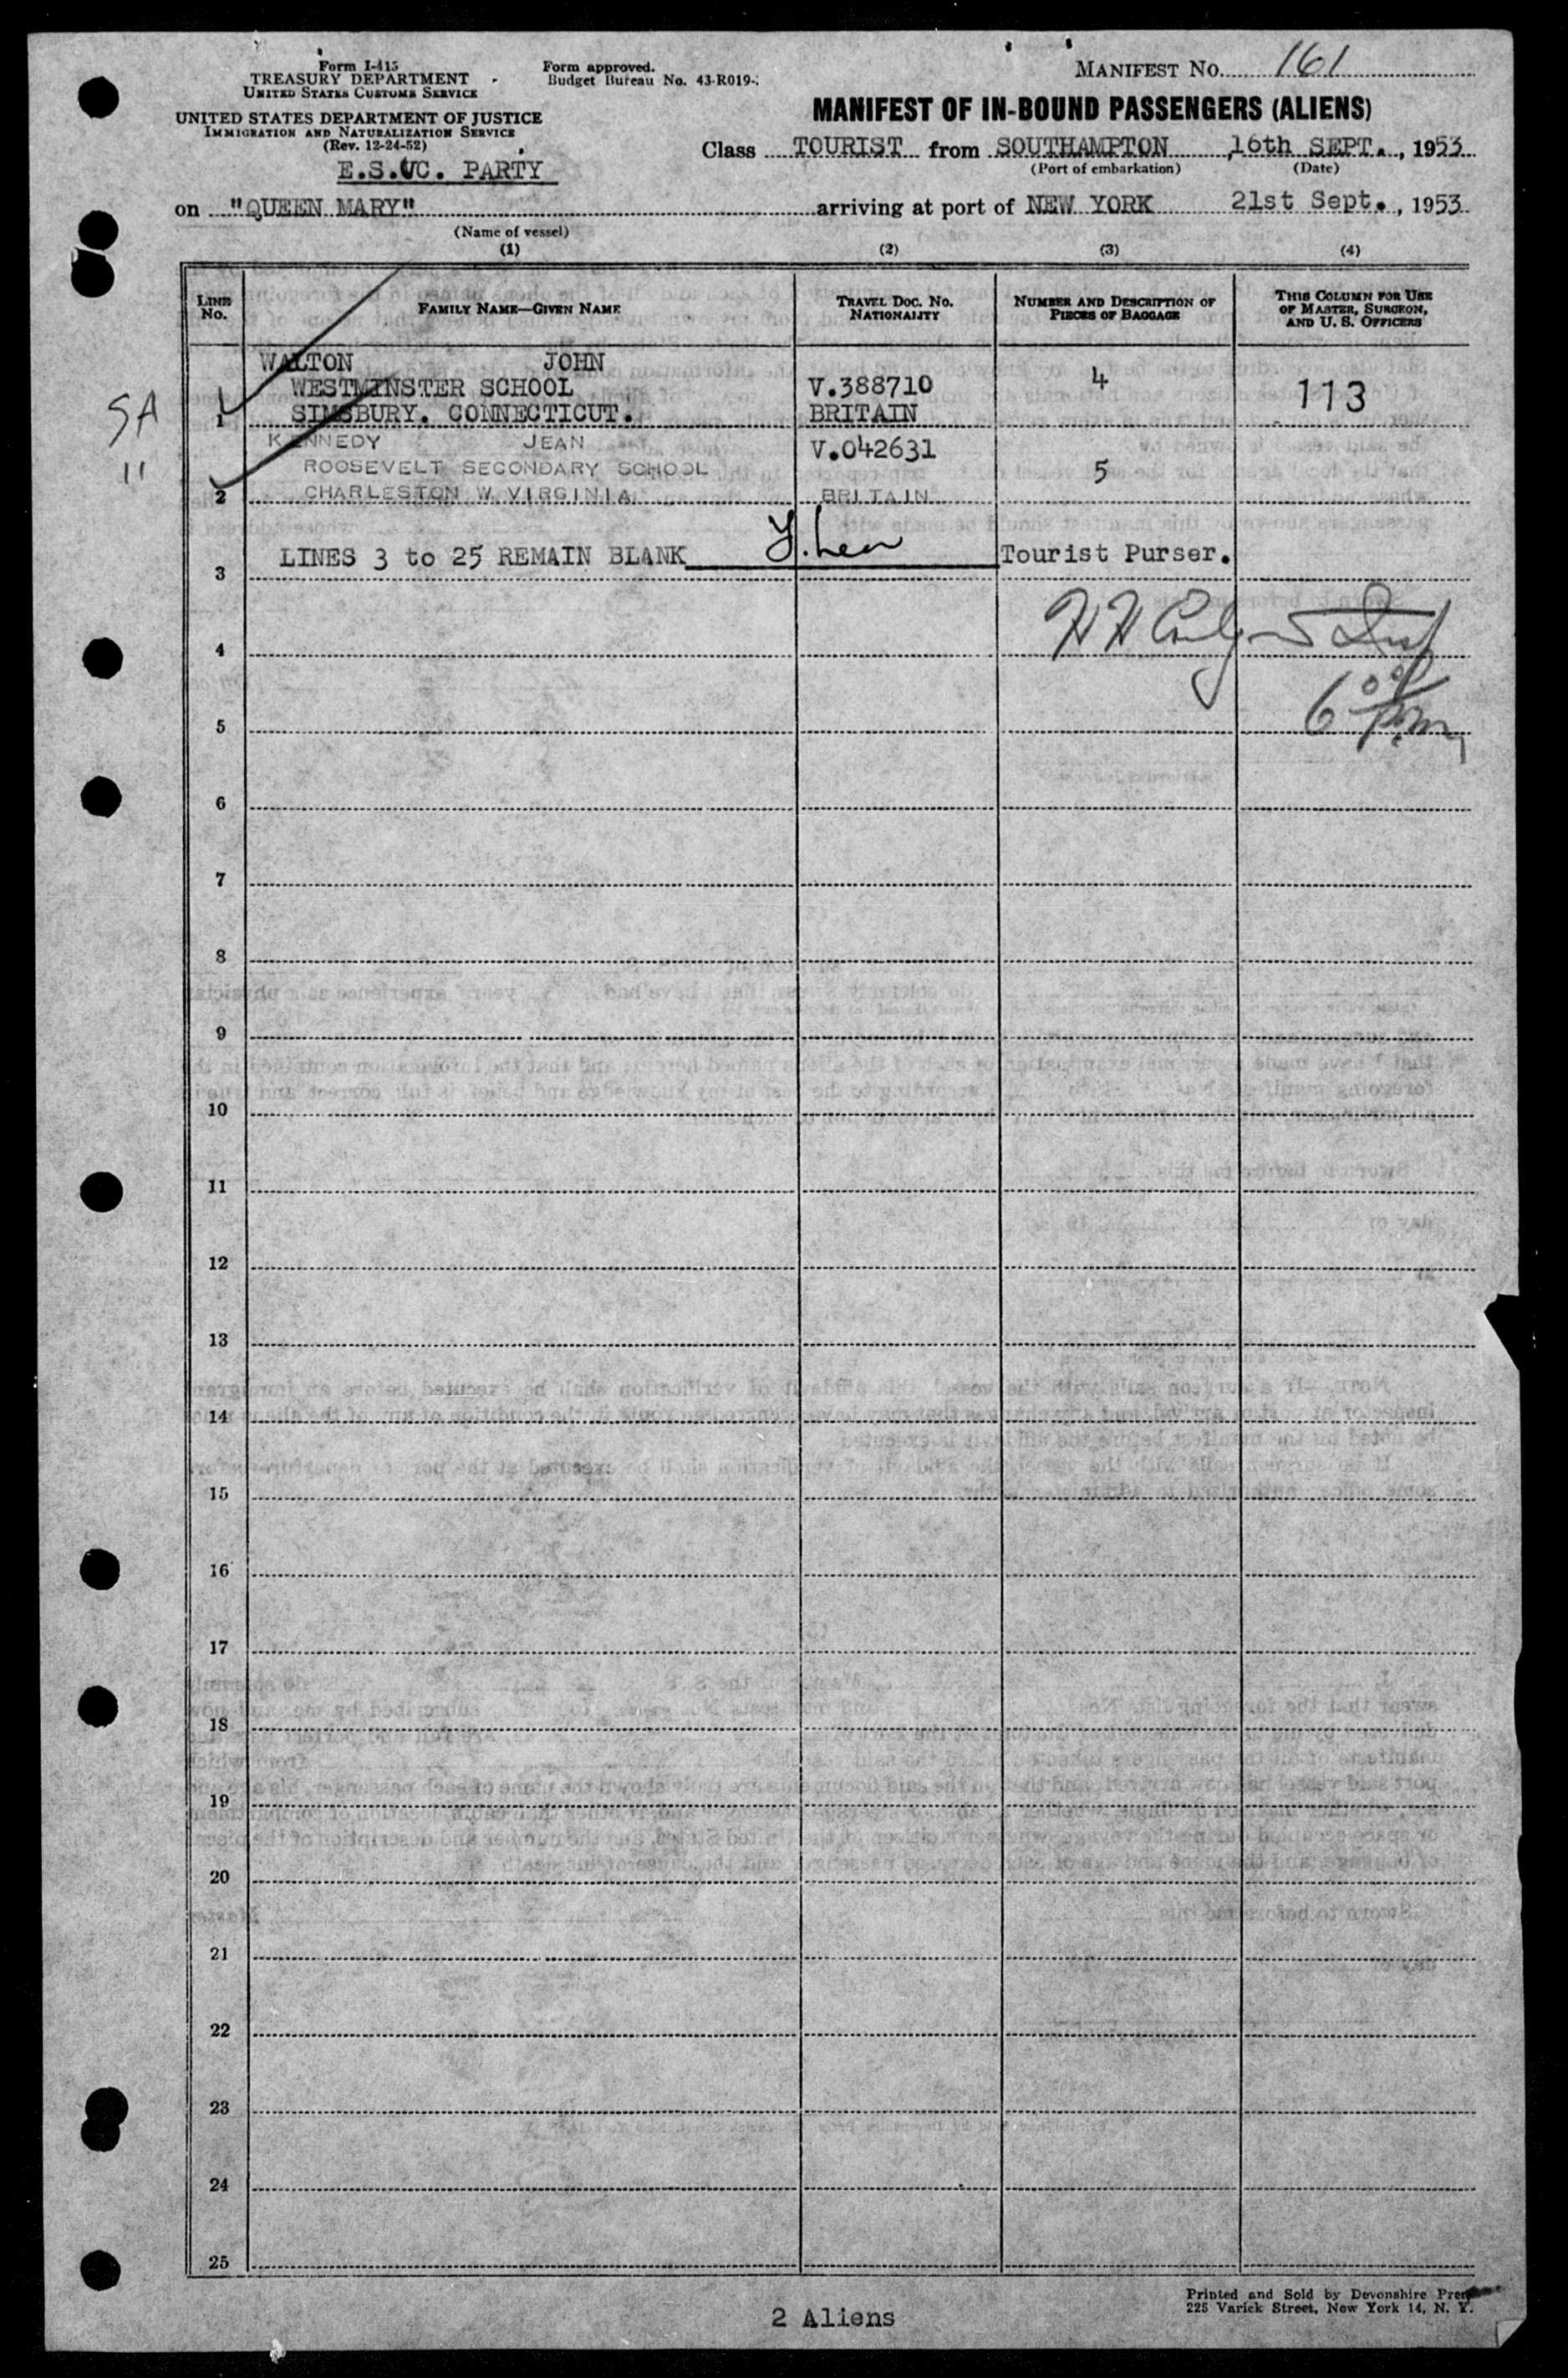 Form I-415
TREASURY DEPARTMENT
UNITED STATES CUSTOMS SERVICE
Form approved.
Budget Bureau No. 43-R019-
MANIFEST NO. 161
UNITED STATES DEPARTMENT OF JUSTICE
IMMIGRATION AND NATURALIZATION SERVICE
(Rev. 12-24-52)
MANIFEST OF IN-BOUND PASSENGERS (ALIENS)
E.S.UC. PARTY
Class TOURIST from SOUTHAMPTON, 16th SEPT., 1953
(Port of embarkation) (Date)
on "QUEEN MARY" arriving at port of NEW YORK 21st Sept., 1953
(Name of vessel)
(1) (2) (3) (4)
LINE No. FAMILY NAME—GIVEN NAME TRAVEL DOC. NO. NATIONALITY NUMBER AND DESCRIPTION OF PIECES OF BAGGAGE THIS COLUMN FOR USE OF MASTER, SURGEON, AND U. S. OFFICERS
WALTON JOHN
SA WESTMINSTER SCHOOL V.388710 4 113
1 SIMSBURY. CONNECTICUT. BRITAIN
KENNEDY JEAN V.042631
" ROOSEVELT SECONDARY SCHOOL 5
2 CHARLESTON W. VIRGINIA BRITAIN
3 LINES 3 to 25 REMAIN BLANK Tourist Purser.
4
5 6 00 p.m.
6
7
8
9
10
11
12
13
14
15
16
17
18
19
20
21
22
23
24
25
2 Aliens
Printed and Sold by Devonshire Press
225 Varick Street, New York 14, N. Y.